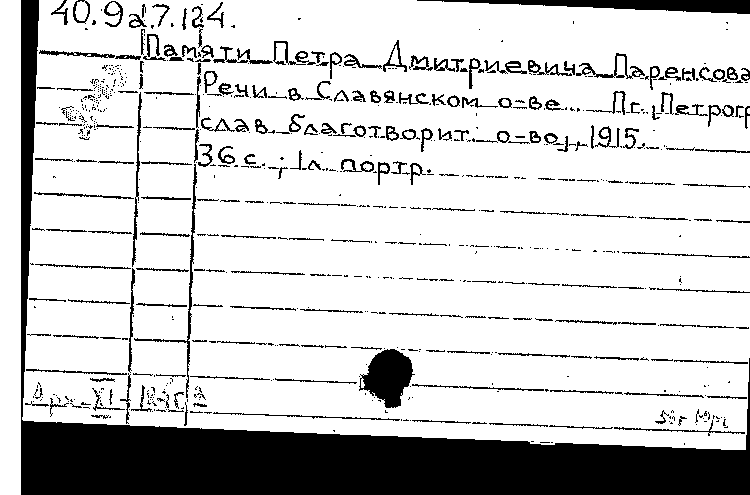 40.9а.7.124.
Памяти Петра Дмитриевича Паренсова
Речи в Славянском о-ве. Пг., Петрогр
слав. благотворит. о-во, 1915.
36 с.; 1л. портр.